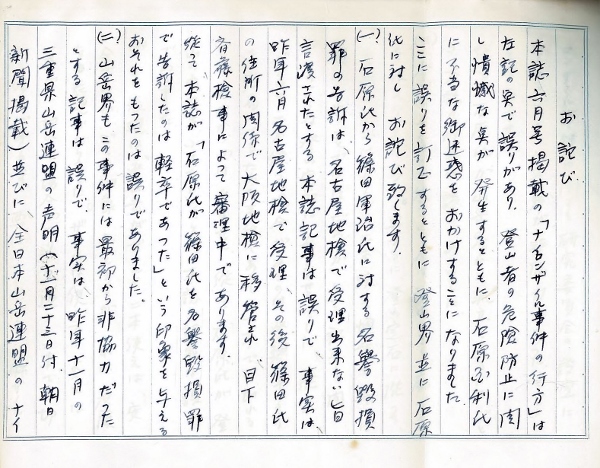 お詫び
本誌六月号掲載の「ナイロンザイル事件の行方」は
左記の点で誤りがあり、登山者の危険防止に関
し憤慨な点が発生するとともに、石原国利氏
に不当な御迷惑をおかけすることになりました。
ここに誤りを訂正するとともに登山界並に石原
氏に対しお詫び致します。
(一) 石原氏から篠田軍治氏に対する名誉毀損
罪の告訴は、名古屋地検で受理出来ない旨
言渡されたとする本誌記事は誤りで、事実は、
昨年六月名古屋地検で受理、その後篠田氏
の住所の関係で大阪地検に移管され、目下
斉藤検事によって審理中であります。
従て、本誌が「石原氏が篠田氏を名誉毀損罪
で告訴したのは軽卒であった」という印象を与える
おそれをもったのは誤りでありました。
(二) 山岳界もこの事件には最初から非協力だった
とする記事は誤りで、事実は、昨年十一月の
三重県山岳連盟の声明(十一月二十三日付、朝日
新聞掲載)並びに、全日本山岳連盟のナイ